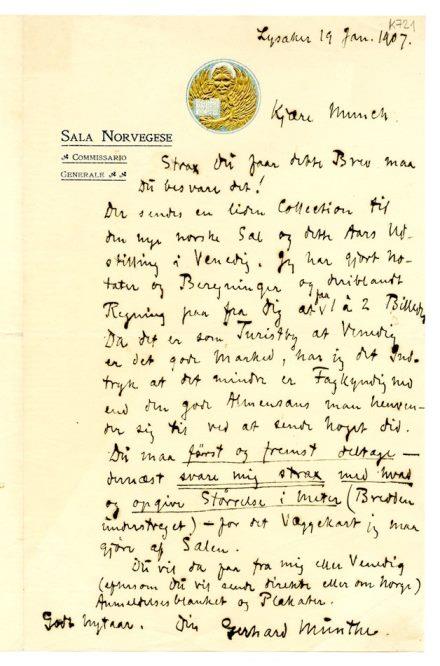 K721
Lysaker 19 Jan. 1907.
Kjære Munch.
SALA NORVEGESE
COMMISSARIO
GENERALE
Strax Du faar dette Brev maa
Du besvare det!
Der sendes en liden Collection til
den nye norske Sal og dette Aars Ud-
stilling i Venedig. Jeg har gjort No-
tater og Beregninger og deriblandt
Regning paa fra Dig at faa 1 à 2 Billeder
Da det er som Turistby at Venedig
er det gode Marked, har jeg det Ind-
tryk at det mindre er Fagkyndighed
end den gode Almensans man henven-
der sig til ved at sende noget did.
Du maa først og fremst deltage –
dernæst svare mig strax med hvad
og opgive Størrelse i Meter (Bredden
understreget) – for det Væggekart jeg maa
gjøre af Salen.
Du vil da faa fra mig eller Venedig
(eftersom Du vil sende direkte eller om Norge)
Anmeldelsesblanket og Plakater.
Godt nytaar. Din Gerhard Munthe.